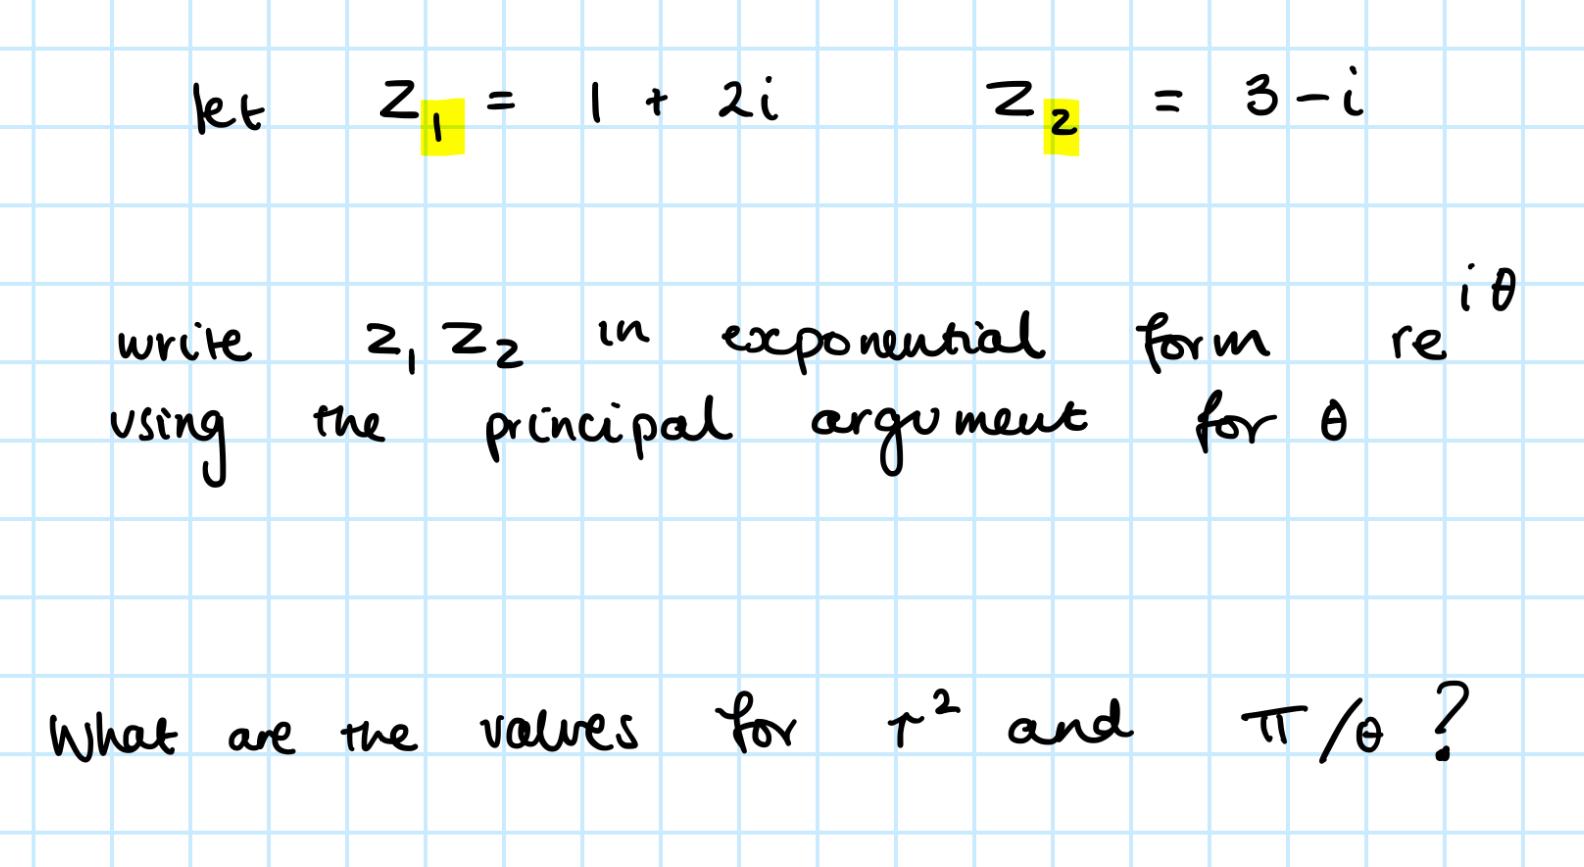 let z₁ = 1 + 2i z₂ = 3 - i
write z₁z₂ in exponential form re^{iθ}
using the principal argument for θ
What are the values for r² and π/θ?